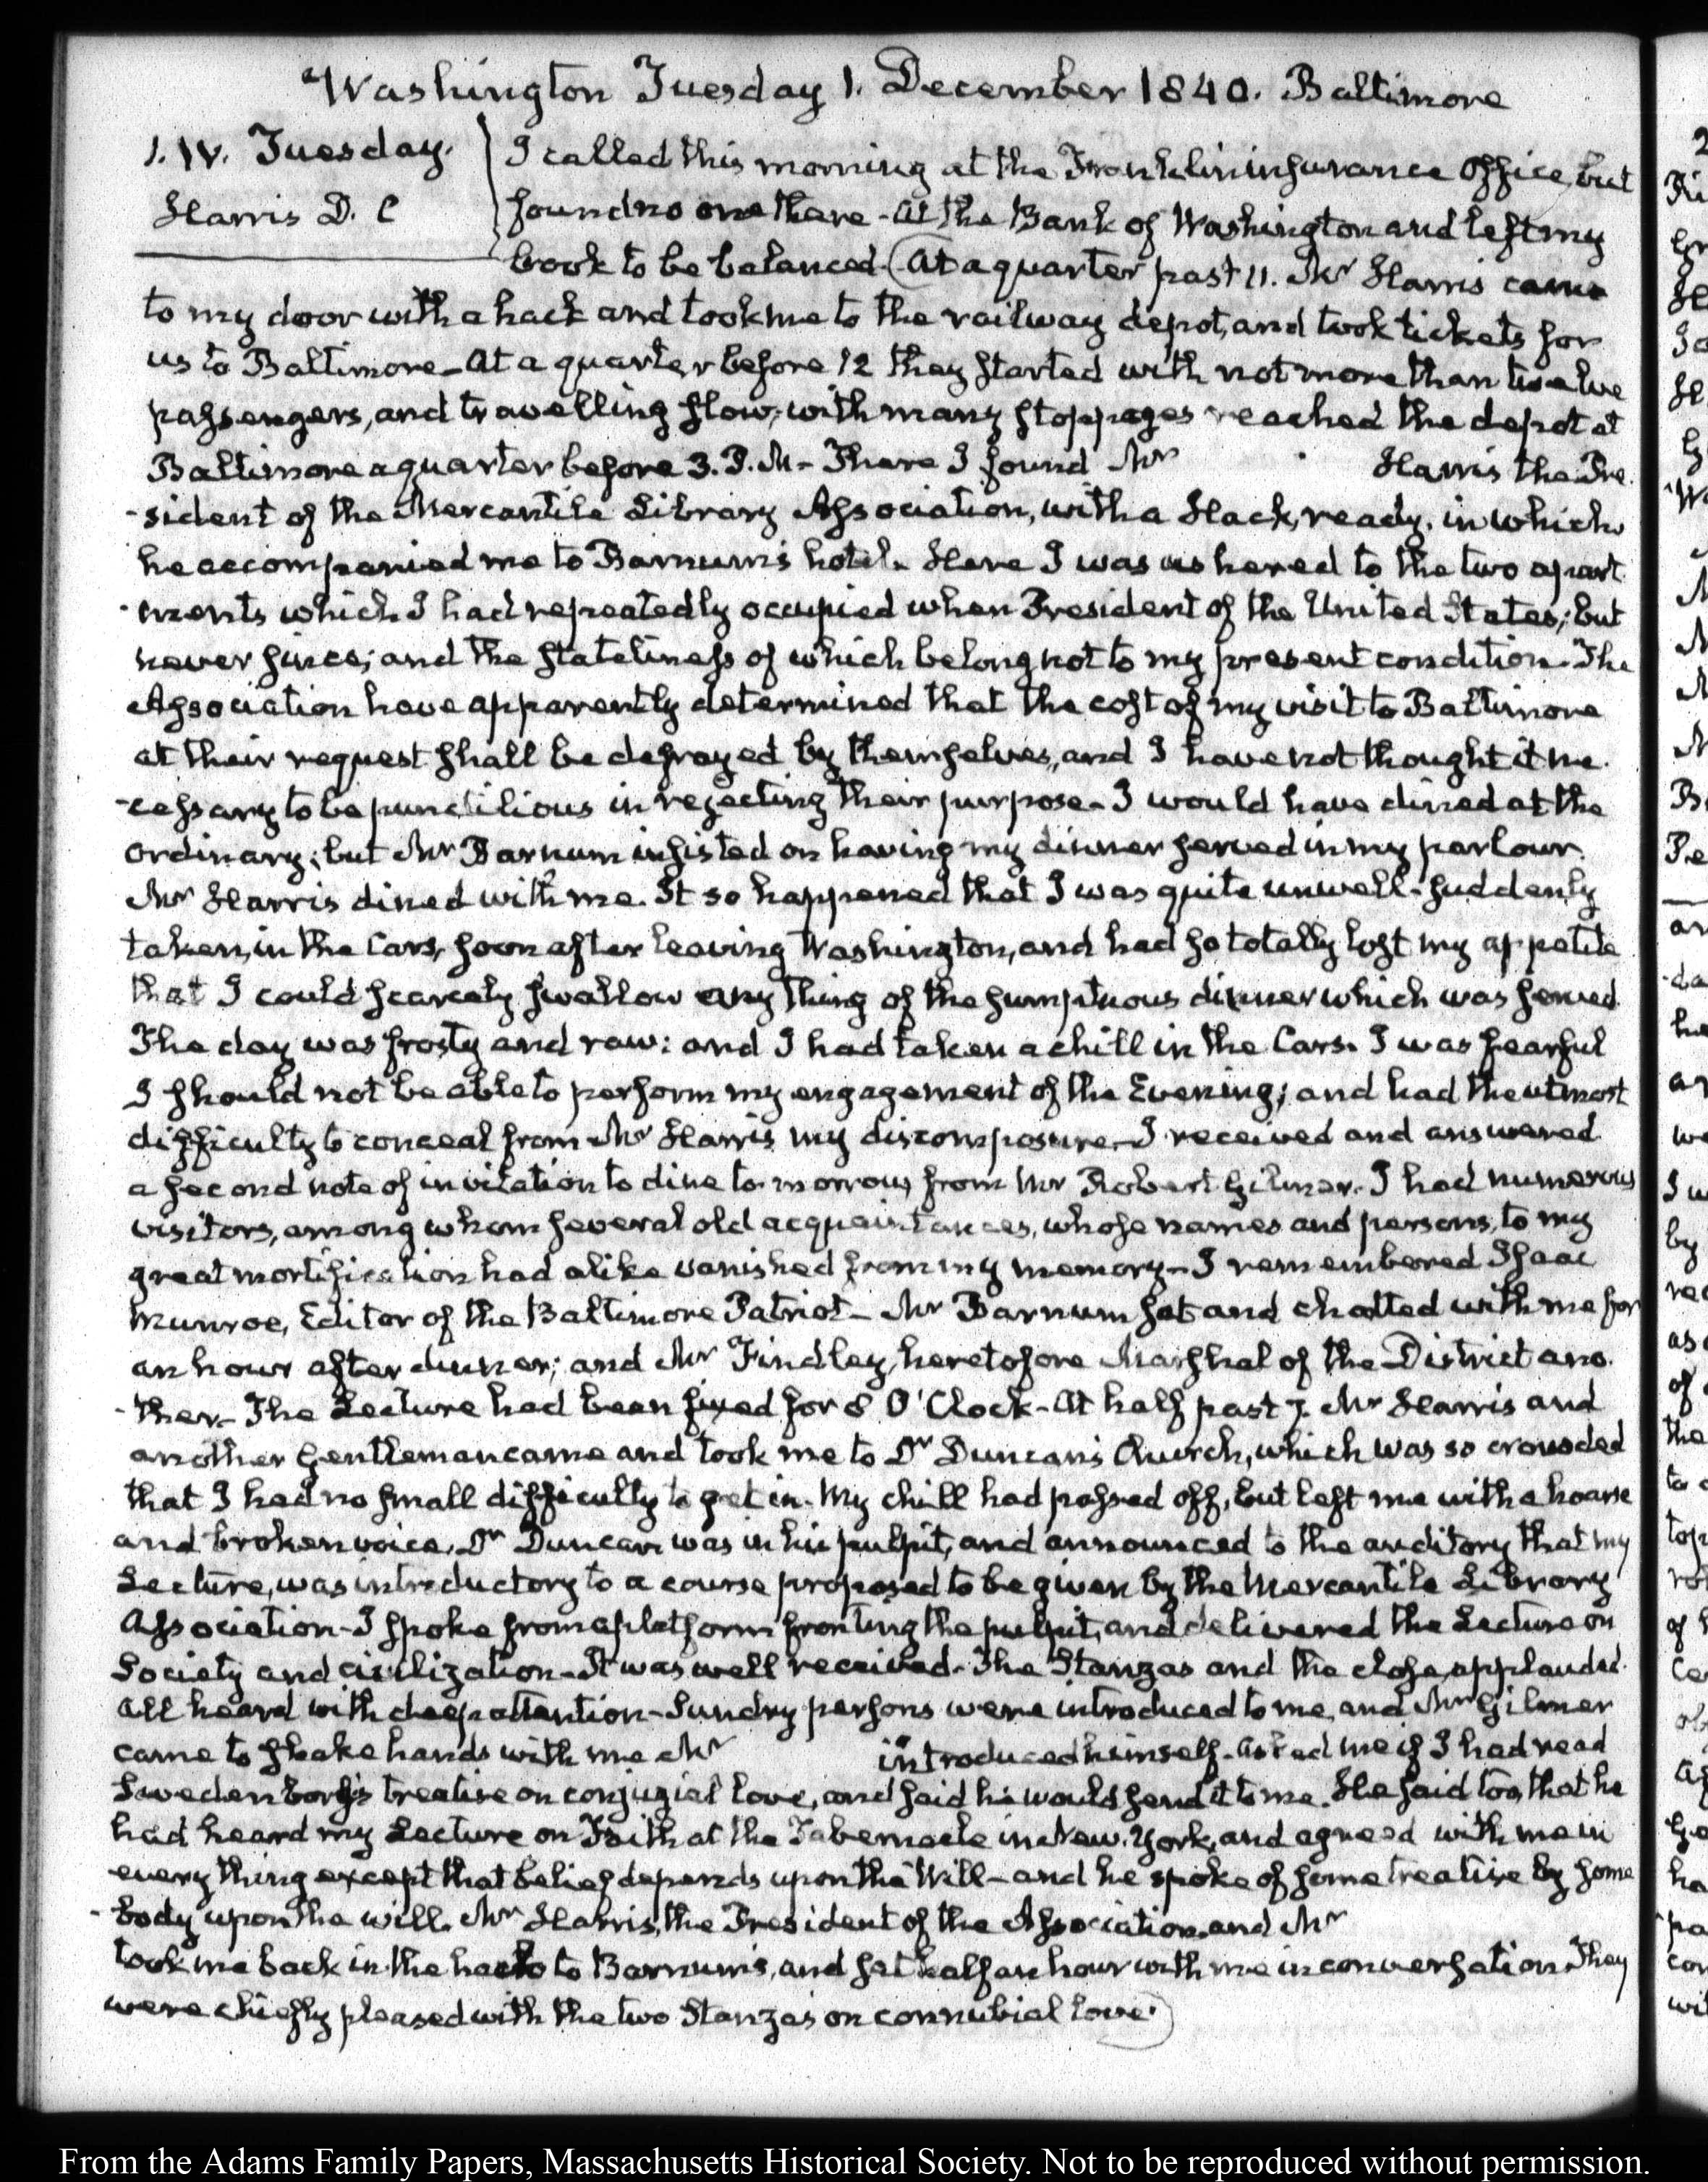 Washington Tuesday 1. December 1840. Baltimore
1. IV. Tuesday.
Harris D. C
I called this morning at the Franklin insurance office, but
found no one there - At the Bank of Washington and left my
book to be balanced. (At a quarter past 11. Mr Harris came
to my door with a hack and took me to the railway depot, and took tickets for
us to Baltimore - At a quarter before 12 they started with not more than twelve
passengers, and travelling slow, with many stoppages reached the depot at
Baltimore a quarter before 3. P.M - There I found Mr Harris the Pre
-sident of the Mercantile Library Association, with a Hack, ready, in which
he accompanied me to Barnum's hotel. Here I was ushered to the two apart
-ments which I had repeatedly occupied when President of the United States; but
never since; and the stateliness of which belong not to my present condition. The
Association have apparently determined that the cost of my visit to Baltimore
at their request shall be defrayed by themselves, and I have not thought it ne
-cessary to be punctilious in rejecting their purpose - I would have dined at the
ordinary; but Mr Barnum insisted on having my dinner served in my parlour.
Mr Harris dined with me. It so happened that I was quite unwell - suddenly
taken, in the Cars, soon after leaving Washington, and had so totally lost my appetite
that I could scarcely swallow any thing of the sumptuous dinner which was served.
The day was frosty and raw: and I had taken a chill in the Cars. I was fearful
I should not be able to perform my engagement of the Evening; and had the utmost
difficulty to conceal from Mr Harris my discomposure. I received and answered
a second note of invitation to dine to-morrow, from Mr Robert Gilmor. I had numerous
visitors, among whom several old acquaintances, whose names and persons, to my
great mortification had alike vanished from my memory - I remembered Isaac
Munroe, Editor of the Baltimore Patriot - Mr Barnum sat and chatted with me for
an hour after dinner; and Mr Findlay, heretofore Marshal of the District ano
-ther - The Lecture had been fixed for 8 O'Clock - At half past 7. Mr Harris and
another Gentleman came and took me to Dr Duncan's Church, which was so crowded
that I had no small difficulty to get in. My chill had passed off, but left me with a hoarse
and broken voice. Dr Duncan was in his pulpit, and announced to the auditory that my
Lecture, was introductory to a course proposed to be given by the Mercantile Library
Association - I spoke from a platform fronting the pulpit, and delivered the Lecture on
Society and civilization - It was well received - The Stanzas and the close, applauded.
All heard with deep attention - Sundry persons were introduced to me, and Mr Gilmer
came to shake hands with me Mr introduced himself - asked me if I had read
Swedenborg's treatise on conjugial love, and said he would send it to me. He said too, that he
had heard my Lecture on Faith at the Tabernacle in New-York, and agreed with me in
every thing except that belief depends upon the Will - and he spoke of some treatise by some
-body upon the will. Mr Harris, the President of the Association, and Mr
took me back in the hack to Barnum's, and sat half an hour with me in conversation. They
were chiefly pleased with the two Stanzas on connubial love.)
From the Adams Family Papers, Massachusetts Historical Society. Not to be reproduced without permission.